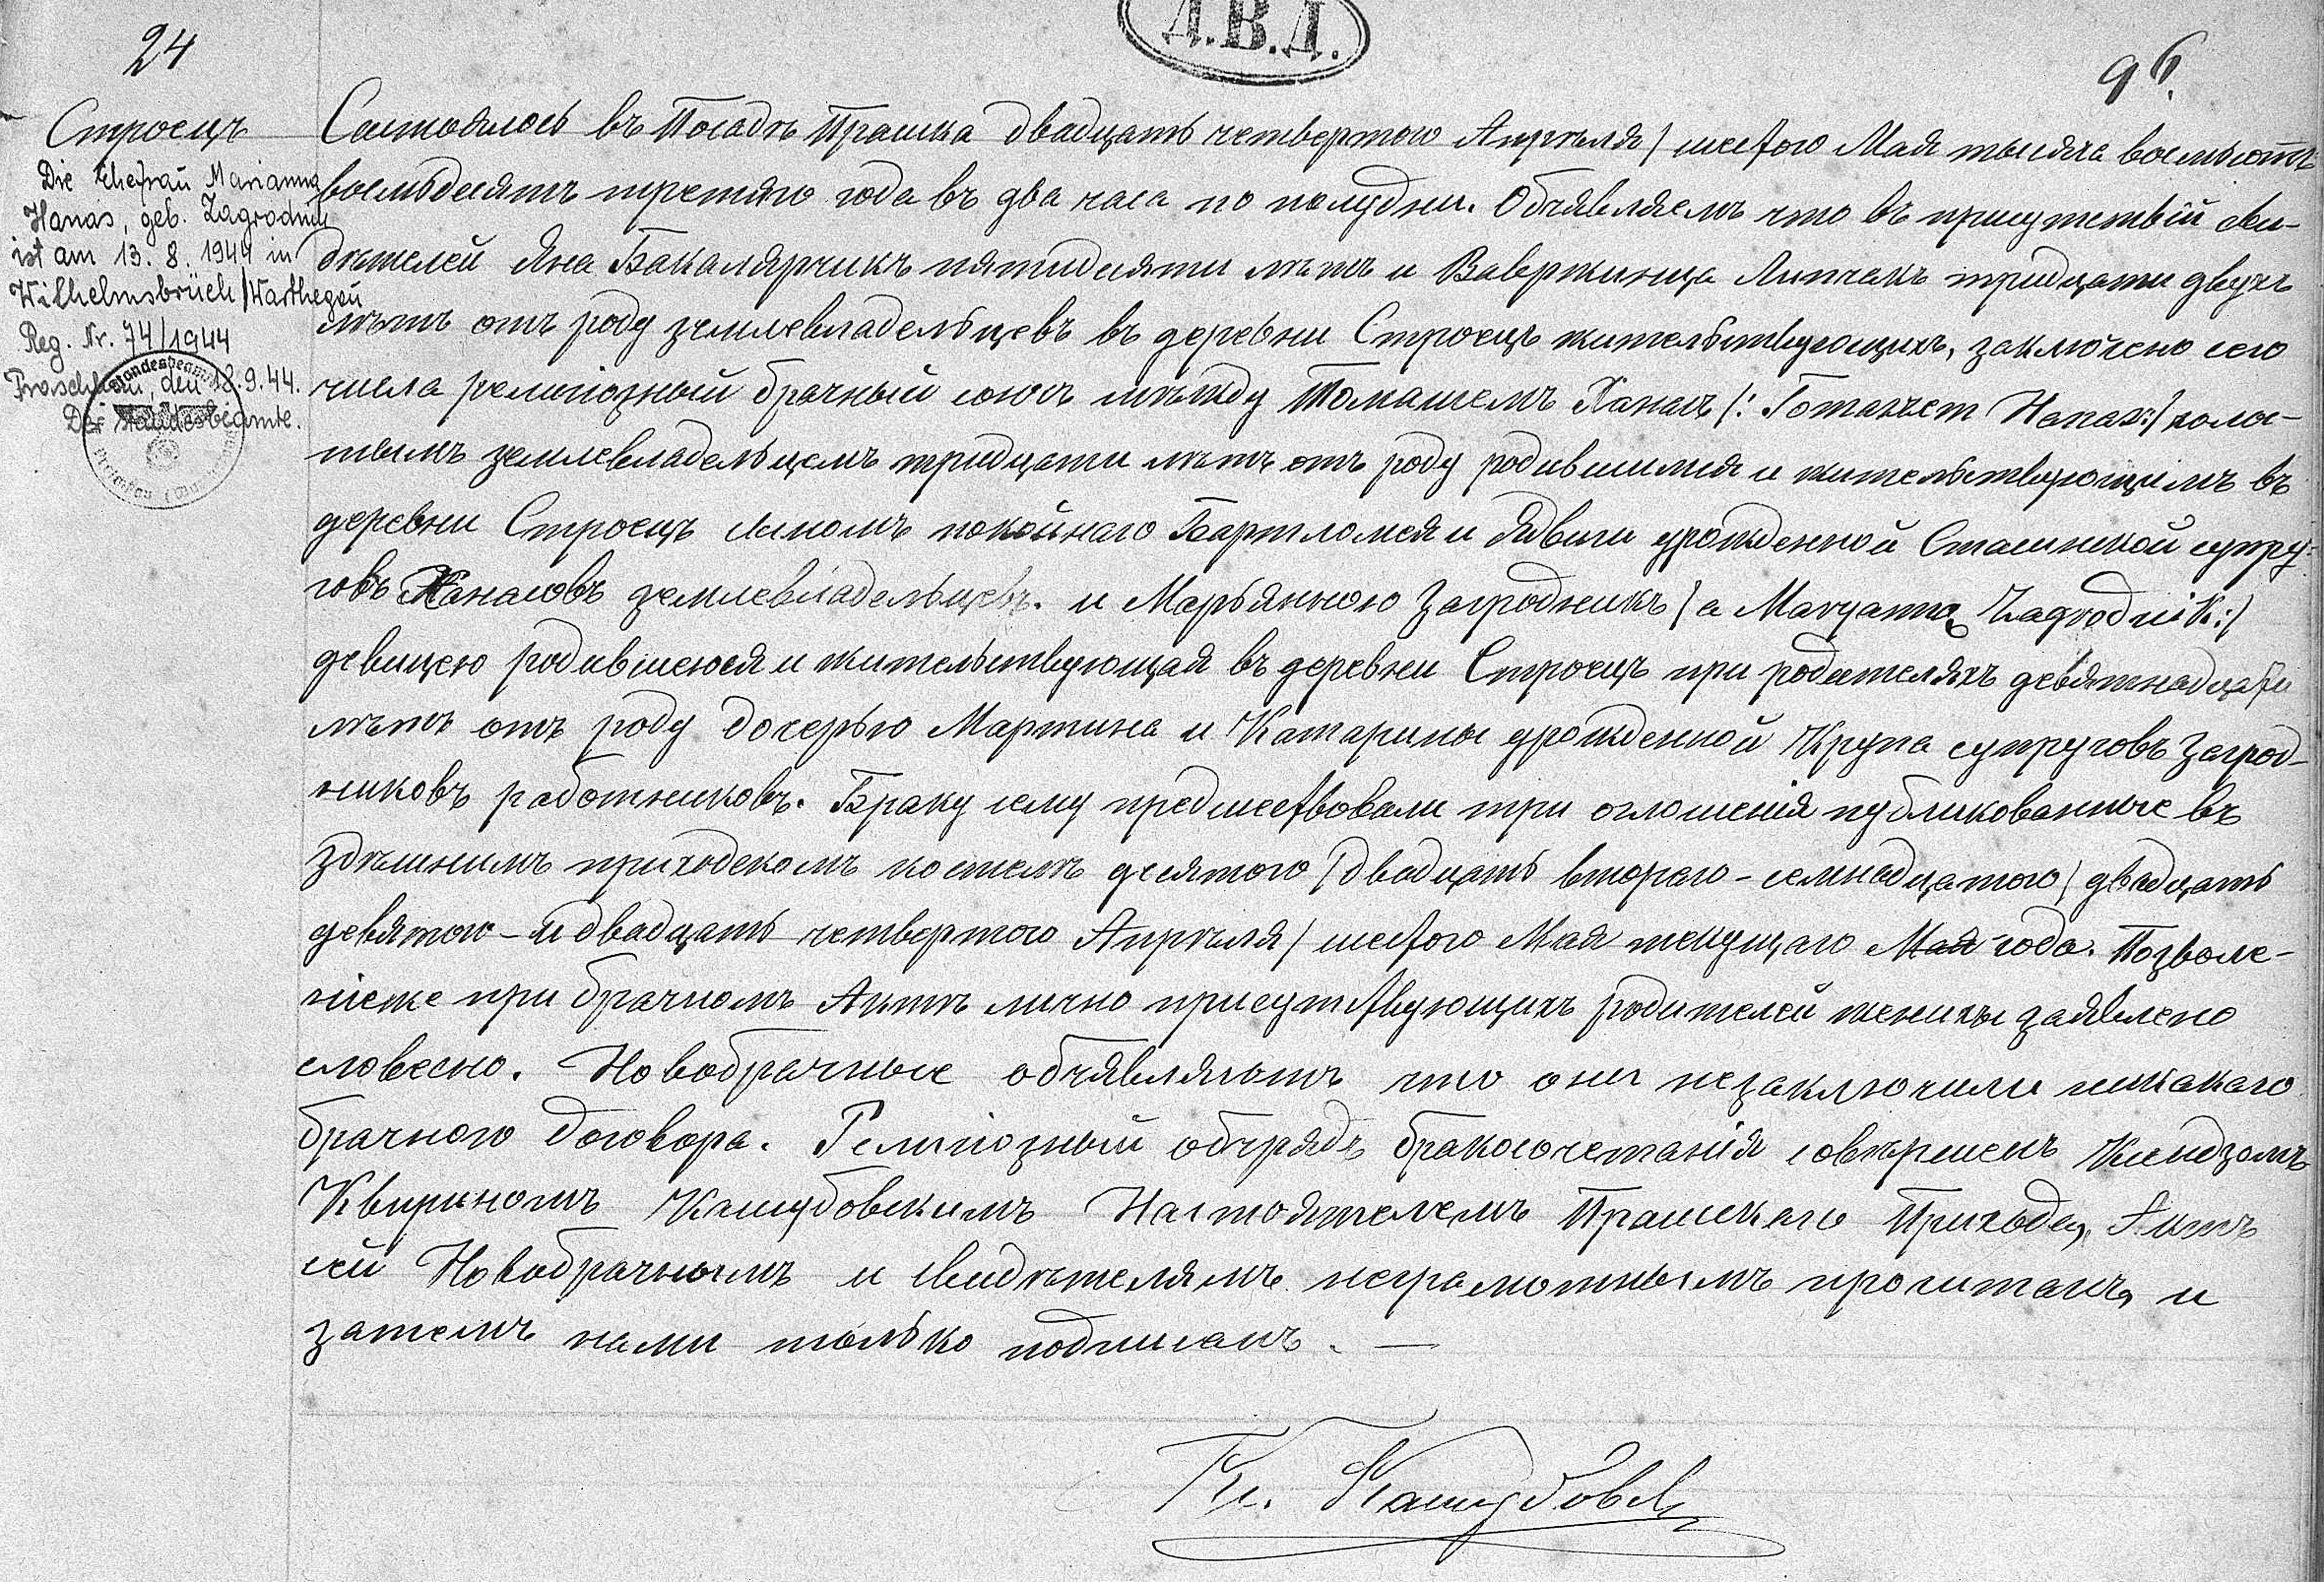 24
Д.В.Д.
96.
Строецъ
Die Ehefrau Marianna
Hanas, geb. Zagrodnik
ist am 13. 8. 1944 in
Wilhelmsbrück/Warthegau
Reg. Nr. 74/1944
Praschkau, den 18.9.44.
Der Standesbeamte.
Состоялось въ Посадѣ Прашка двадцать четвертого Апрѣля / шестого Мая тысяча восемьсотъ
восемьдесятъ третяго года въ два часа по полудни. Объявляемъ что въ присутствіи сви-
дѣтелей Яна Бакалярчикъ пятидесяти лѣтъ и Вавержинца Липчакъ тридцати двухъ
лѣтъ отъ роду землевладельцевъ въ деревни Строецъ жительствующихъ, заключено сего
числа религіозный брачный союзъ мѣжду Томашемъ Ханасъ /: Hanas:/ холос-
тымъ землевладельцемъ тридцати лѣтъ отъ роду родившимся и жительствующимъ въ
деревни Строецъ сыномъ покойнаго Бартломея и Ядвиги урожденной супру-
говъ Ханасовъ землевладельцевъ. и Марьянною Загродникъ / a Maryanna Zagrodnik:/
девицею родившеюся и жительствующая въ деревни Строецъ при родителяхъ девятнадцати
лѣтъ отъ роду дочерью Мартина и Катарины урожденной Крупа супруговъ Загрод-
никовъ работниковъ. Браку сему предшествовали три оглошенія публикованные въ
здѣшнимъ приходскомъ костелѣ десятого / двадцать второго - семнадцатого / двадцать
девятого - и двадцать четвертого Апрѣля / шестого Мая текущаго Мая года. Позволе-
ніеже при брачномъ Актѣ лично присутствующихъ родителей женихи заявлено
словесно. Новобрачные объявляютъ что они незаключили никакаго
брачного договора. Религіозный обърядъ бракосочетанія совѣршенъ Ксендзомъ
Квириномъ Кашубовскимъ Настоятелемъ Прашскаго Прихода, Актъ
сей Новобрачнымъ и свидѣтелямъ неграмотнымъ прочитанъ, и
затемъ нами только подписанъ. —
Кс. Кашубовск